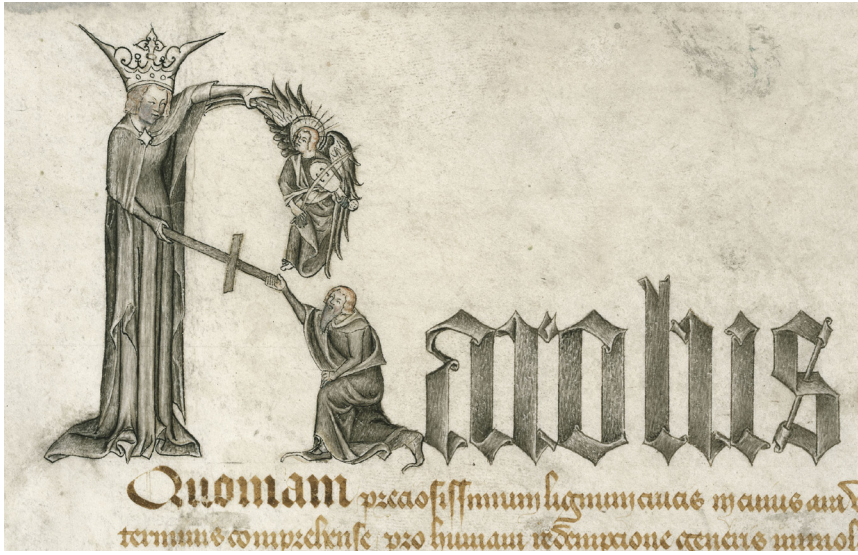 Karolus
Quoniam preciosissimum lignum crucis in cuius ara
terminus comprehense pro humani redempcione generis immol